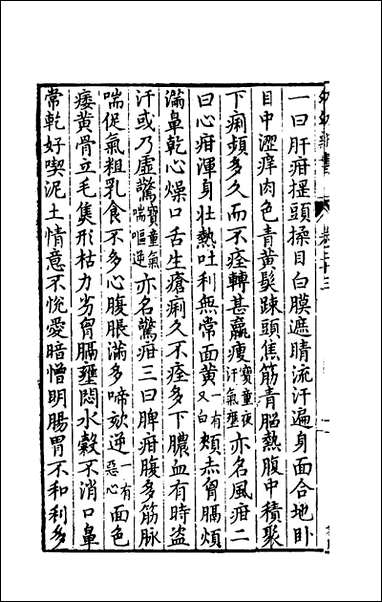 一曰肝疳揺頭揉目白膜遮睛流汗遍身面合地卧
目中澀痒肉色青黄髮踈頭焦筋青腦熱腹中積聚
下痢頻多久而不痊轉甚羸瘦寳童夜汗氣壅亦名風疳二
曰心疳渾身壮熱吐利無常面黄一有又白頬赤胷膈煩
滿鼻乾心燥口舌生瘡痢久不痊多下膿血有時盗
汗或乃虚驚寳童氣喘嘔逆亦名驚疳三曰脾疳腹多筋脉
喘促氣粗乳食不多心腹脹滿多啼欬逆一有惡心面色
痿黄骨立毛焦形枯力劣胷膈壅悶水穀不消口鼻
常乾好喫泥土情意不悦愛暗憎明腸胃不和利多